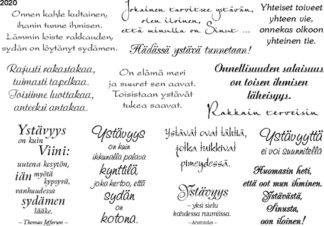 2020
Onnen kahle kultainen,
ihanin tunne ihmisen.
Lämmin loiste rakkauden,
sydän on löytänyt sydämen.
Jokainen tarvitsee ystävän,
olen iloinen,
että minulla on Sinut ...
Hädässä ystävä tunnetaan!
Yhteiset toiveet
yhteen vie,
onnekas olkoon
yhteinen tie.
Rajusti rakastakaa,
tuimasti tapelkaa.
Toisiinne luottakaa,
anteeksi antakaa.
On elämä meri
ja suuret sen aavat.
Toisistaan ystävät
tukea saavat.
Onnellisuuden salaisuus
on toisen ihmisen
läheisyys.
Rakkain terveisin
Ystävyys
on kuin
Viini:
uutena kesytön,
iän myötä kypsyvä,
vanhuudessa
sydämen
lääke.
– Thomas Jefferson –
Ystävyys
on kuin
ikkunalla palava
kynttilä,
joka kertoo, että
sydän
on
kotona.
Ystävät ovat lähellä,
jotka tuikkivat
pimeydessä.
Ystävyys
– yksi sielu
kahdessa ruumiissa.
– Aristoteles –
Ystävyyttä
ei voi suunnitella
Huomasin heti,
että oot mun ihminen.
Ystävästä,
Sinusta,
oon iloinen!